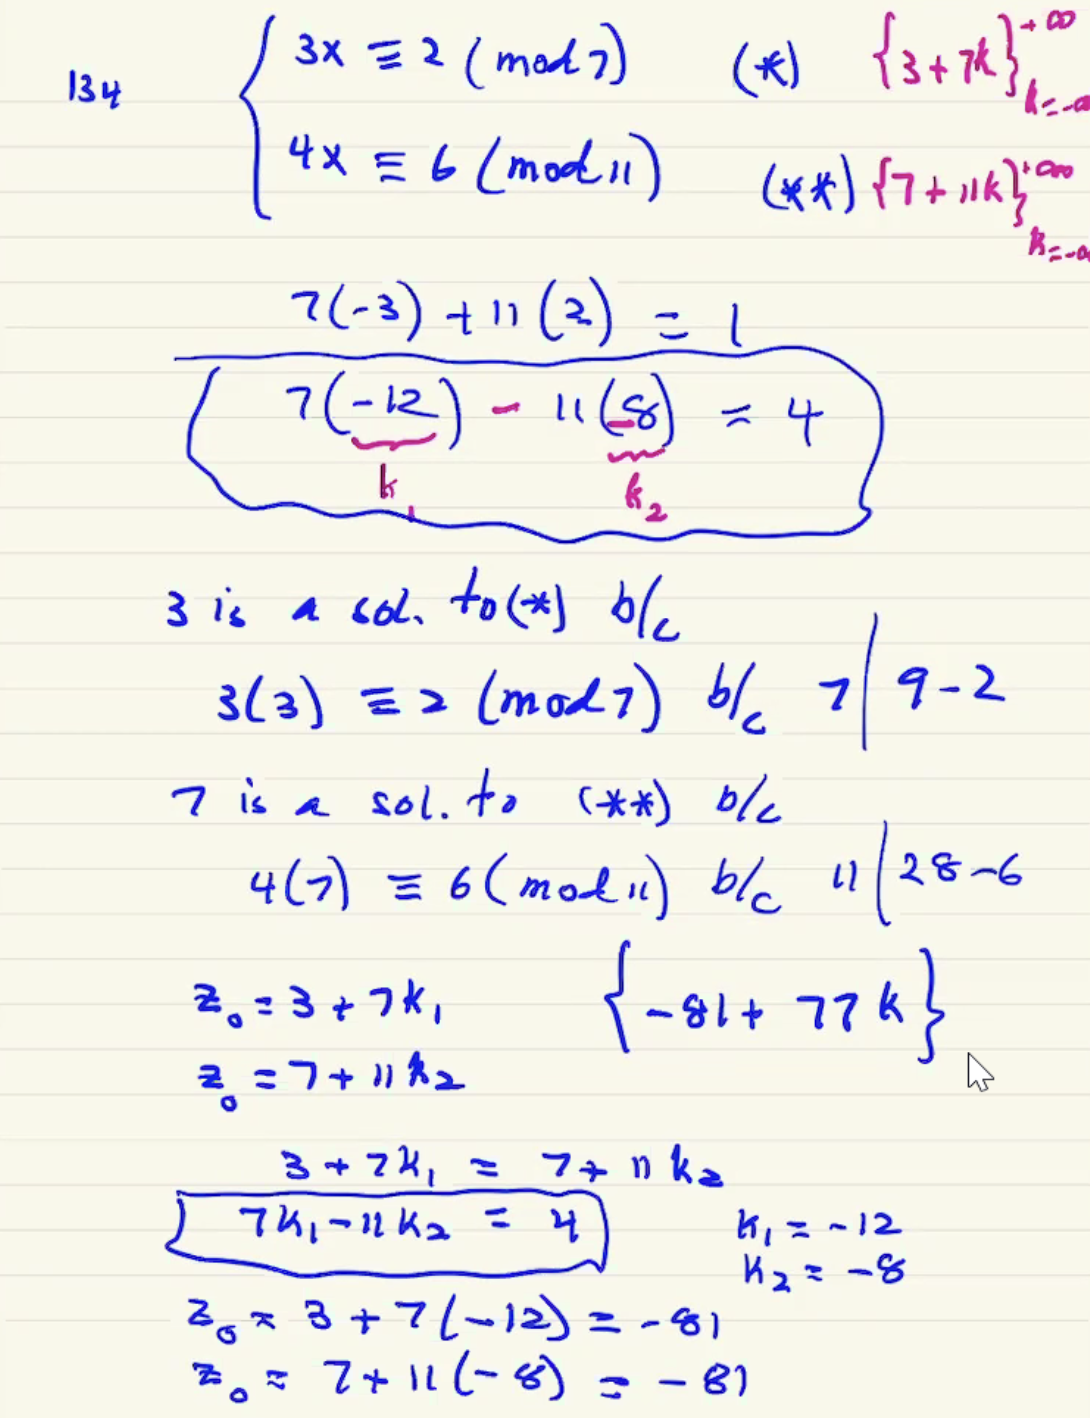 134
3x ≡ 2 (mod 7) (*) {3 + 7k}^{+∞}_{k=-∞}
4x ≡ 6 (mod 11) (**) {7 + 11k}^{+∞}_{k=-∞}
7(-3) + 11(2) = 1
7(-12) - 11(-8) = 4
k₁ k₂
3 is a sol. to (*) b/c
3(3) ≡ 2 (mod 7) b/c 7 | 9-2
7 is a sol. to (**) b/c
4(7) ≡ 6 (mod 11) b/c 11 | 28-6
z₀ = 3 + 7k₁ {-81 + 77k}
z₀ = 7 + 11k₂
3 + 7k₁ = 7 + 11k₂
7k₁ - 11k₂ = 4 k₁ = -12
k₂ = -8
z₀ = 3 + 7(-12) = -81
z₀ = 7 + 11(-8) = -81